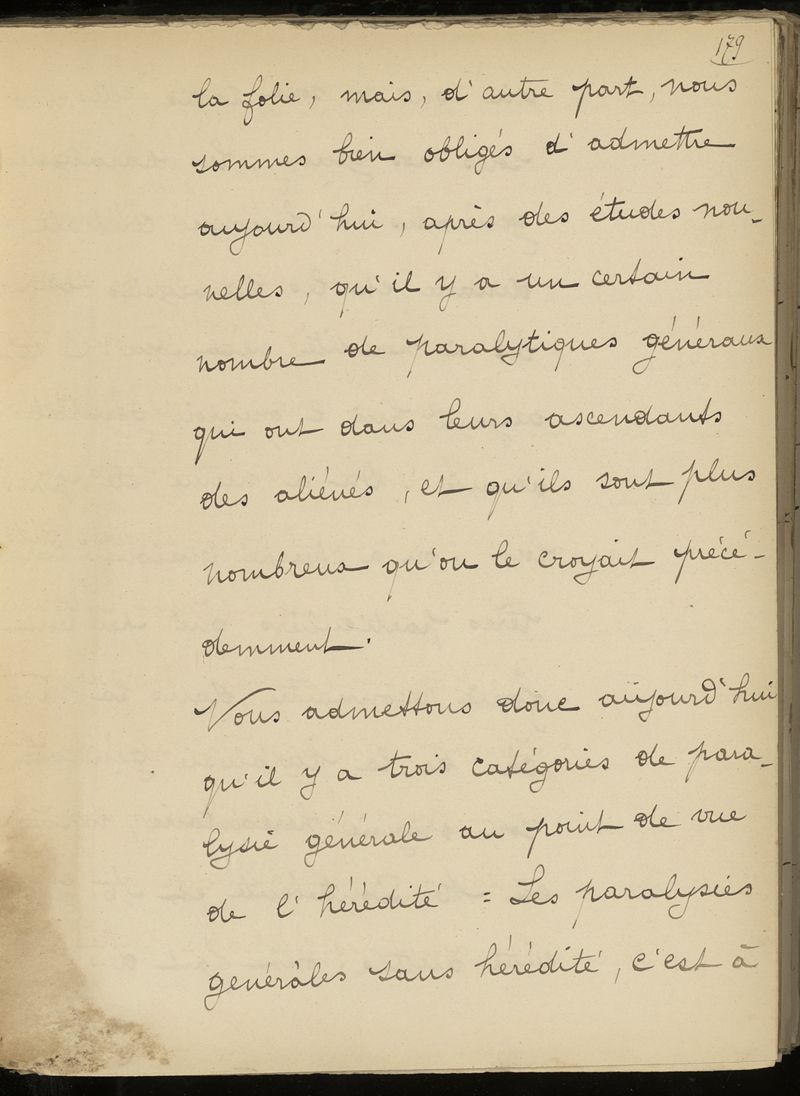 179
la folie, mais, d'autre part, nous
sommes bien obligés d'admettre
aujourd'hui, après des études nou-
velles, qu'il y a un certain
nombre de paralytiques généraux
qui ont dans leurs ascendants
des aliénés, et qu'ils sont plus
nombreux qu'on le croyait précé-
demment.
Nous admettons donc aujourd'hui
qu'il y a trois catégories de para-
lysie générale au point de vue
de l'hérédité = Les paralysies
générales sans hérédité, c'est à